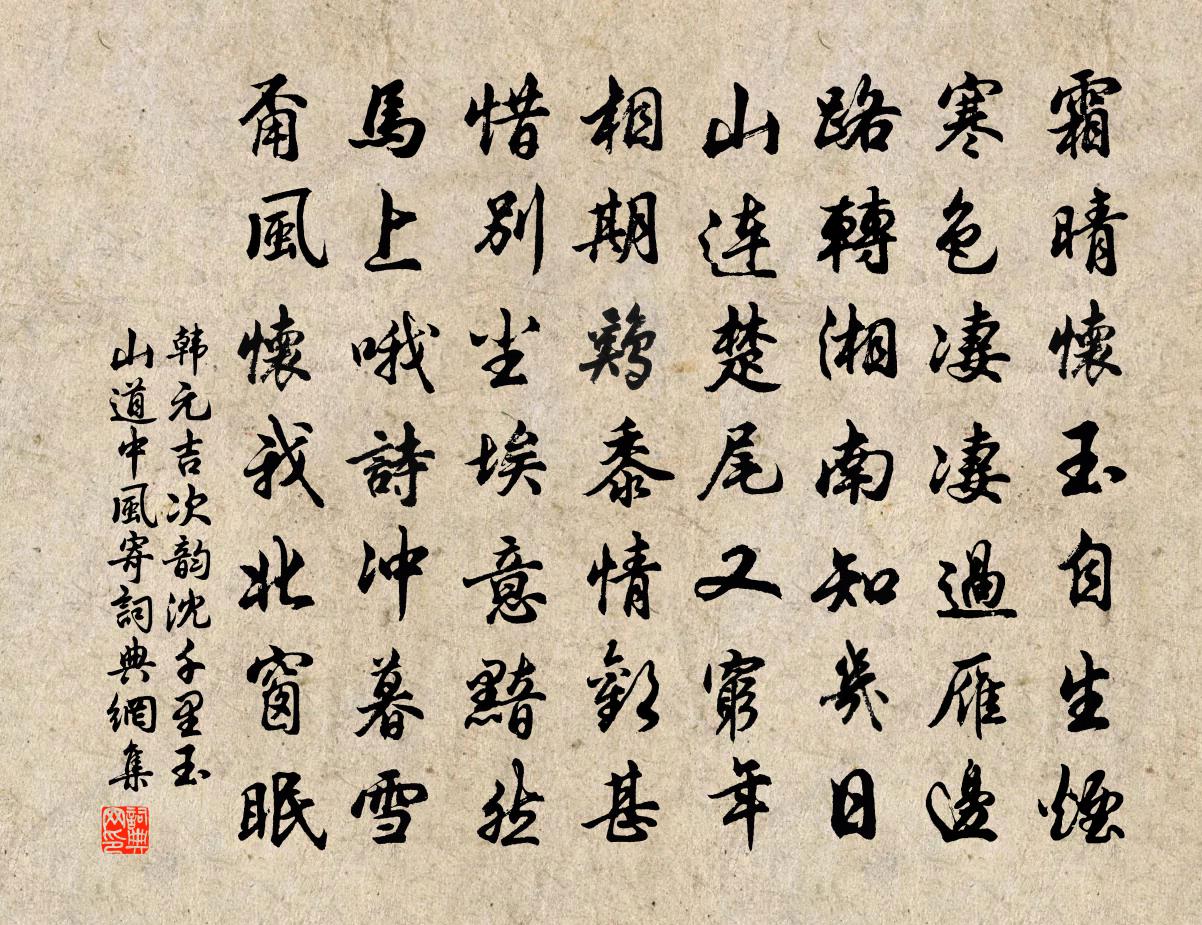 霜晴懷玉自生煙
寒色凄凄過雁邊
路轉湘南知幾日
山連楚尾又窮年
相期鷄黍情歡甚
惜別尘埃意黯然
馬上哦詩冲暮雪
甭風懷我北窗眠
韩元吉次韵沈千里玉
山道中風寄詞典網集
詞典网印